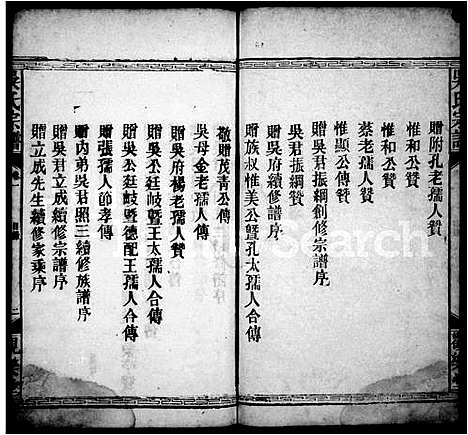 贈附孔老孺人贊
惟和公贊
惟和公贊
蔡老孺人贊
惟顯公傳贊
吳君振綱創修宗譜序
吳君振綱贊
贈吳府續修譜序
贈族叔惟美公暨孔太孺人合傳
敬贈茂青公傳
吳母金老孺人傳
贈吳府楊老孺人贊
吳公廷岐暨王太孺人合傳
吳公廷岐暨德配王孺人合傳
贈張孺人節孝傳
贈內弟吳君照三續修族譜序
贈吳君立成續修宗譜序
贈立成先生續修家乘序
吳氏宗譜
Search